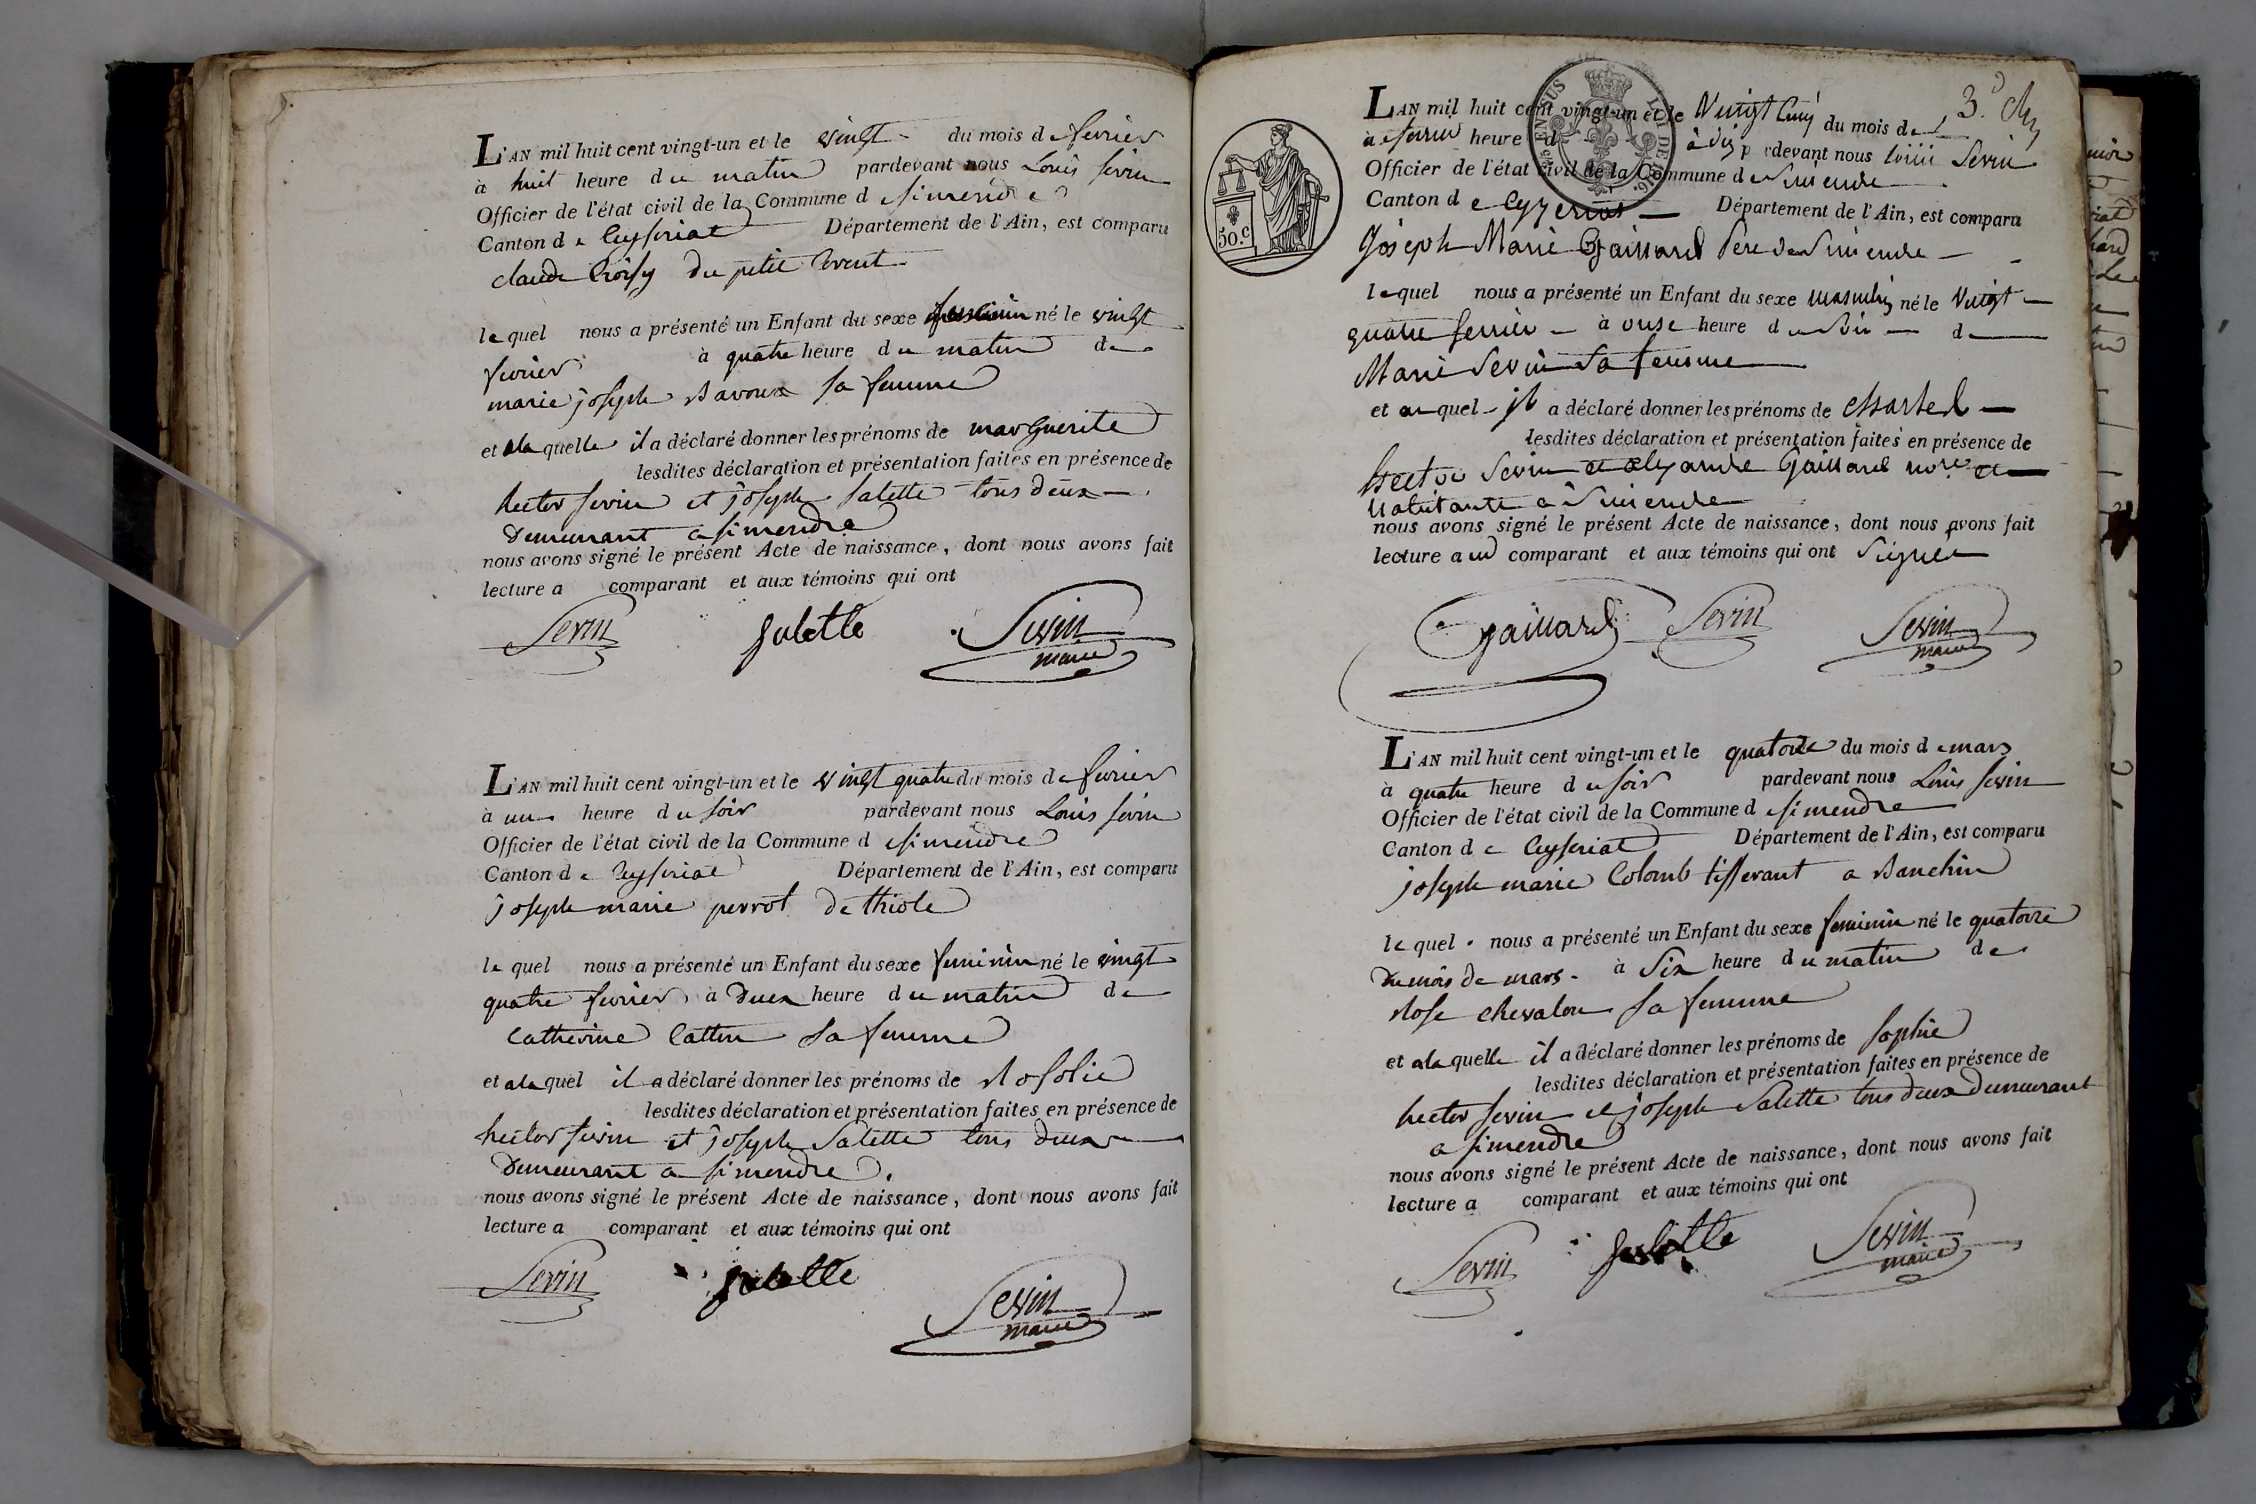 L'AN mil huit cent vingt-un et le vingt du mois de fevrier
à huit heure du matin pardevant nous Louis Sevin
Officier de l'état civil de la Commune d simendre
Canton de Ceyseriat Département de l'Ain, est comparu
claude du petit
lequel nous a présenté un Enfant du sexe feminin né le vingt
fevrier à quatre heure du matin de
marie joseph Savoux sa femme
et a la quelle il a déclaré donner les prénoms de marguerite
lesdites déclaration et présentation faites en présence de
hector sevin et joseph Salette tous deux
Demeurant a simendre
nous avons signé le présent Acte de naissance, dont nous avons fait
lecture a comparant et aux témoins qui ont
Sevin Salette Sevin
maire
L'AN mil huit cent vingt-un et le vingt quatre du mois de fevrier
à une heure du soir pardevant nous Louis Sevin
Officier de l'état civil de la Commune d simendre
Canton de Ceyseriat Département de l'Ain, est comparu
joseph marie perrot De thiole
le quel nous a présenté un Enfant du sexe feminin né le vingt
quatre fevrier à Deux heure du matin de
Catherine Cattin Sa femme
et a la quel il a déclaré donner les prénoms de Rosolie
lesdites déclaration et présentation faites en présence de
hector sevin et joseph Salette tous deux
Demeurant a simendre.
nous avons signé le présent Acte de naissance, dont nous avons fait
lecture a comparant et aux témoins qui ont
Sevin Salette Sevin
maire
L'AN mil huit cent vingt-un et le Vingt Cinq du mois de
à heure d à dix pardevant nous Louis Sevin
Officier de l'état civil de la Commune de Simendre
Canton de Ceyzeriat Département de l'Ain, est comparu
50.c
Joseph Marie Gaillard Pere de Simendre
lequel nous a présenté un Enfant du sexe masculin né le Vingt
quatre fevrier à onze heure du Soir de
Marie Sevin Sa femme
et au quel il a déclaré donner les prénoms de Charles
lesdites déclaration et présentation faites en présence de
hector Sevin et alexandre Gaillard
habitants a Simendre
nous avons signé le présent Acte de naissance, dont nous avons fait
lecture aud comparant et aux témoins qui ont Signés
Gaillard Sevin Sevin
maire
L'AN mil huit cent vingt-un et le quatorze du mois de mars
à quatre heure du soir pardevant nous Louis Sevin
Officier de l'état civil de la Commune d simendre
Canton de Ceyseriat Département de l'Ain, est comparu
joseph marie Colomb tisserant a Banchin
le quel nous a présenté un Enfant du sexe feminin né le quatorze
du mois de mars à Six heure du matin de
Rose chevalon sa femme
et a la quelle il a déclaré donner les prénoms de sophie
lesdites déclaration et présentation faites en présence de
hector sevin et joseph Salette tous deux Demeurant
a simendre
nous avons signé le présent Acte de naissance, dont nous avons fait
lecture a comparant et aux témoins qui ont
Sevin Salette Sevin
maire